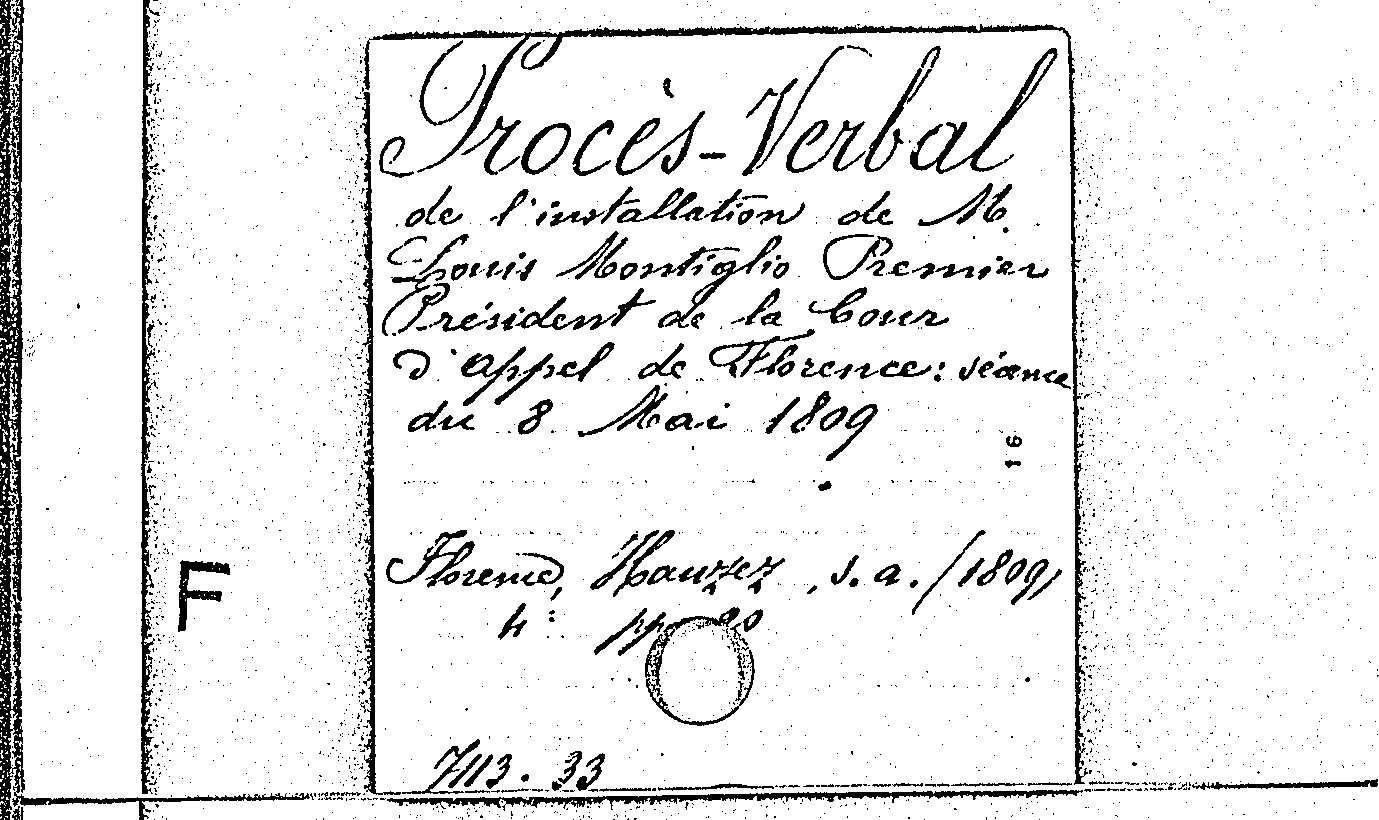 Procès-Verbal
de l'installation de M.
Louis Montiglio Premier
Président de la Cour
d'appel de Florence: séance
du 8 Mai 1809
16
Florence, Hauzez, s.a. (1809)
F
4° pp.
7113.33